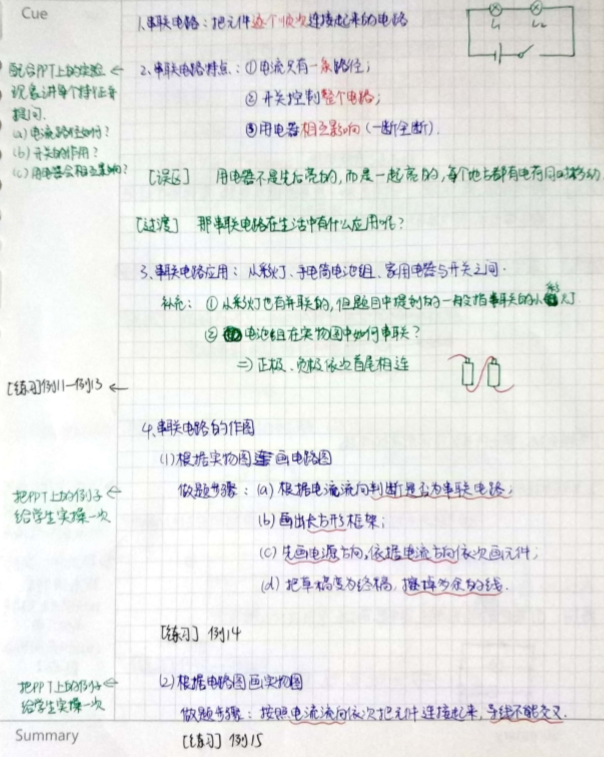 Cue
1.串联电路：把元件逐个顺次连接起来的电路
L₁ L₂
配合PPT上的实验
现象讲每个特征并
提问.
(a)电流路径如何？
(b)开关的作用？
(c)用电器会相互影响？
2、串联电路特点：①电流只有一条路径；
②开关控制整个电路；
③用电器相互影响(一断全断).
[误区] 用电器不是先后亮的,而是一起亮的,每个地方都有电荷同时移动
[过渡] 那串联电路在生活中有什么应用呢？
3、串联电路应用：小彩灯、手电筒电池组、家用电器与开关之间.
补充：①小彩灯也有并联的,但题目中提到的一般指串联的小彩灯
②电池组在实物图中如何串联？
⇒正极、负极依次首尾相连
[练习]例11-例13
4、串联电路的作图
(1)根据实物图画电路图
把PPT上的例子
给学生实操一次
做题步骤：(a)根据电流流向判断是否为串联电路；
(b)画出长方形框架；
(c)先画电源方向,依据电流方向依次画元件；
(d)把草稿变为终稿,擦掉多余的线.
[练习]例14
(2)根据电路图画实物图
把PPT上的例子
给学生实操一次
做题步骤：按照电流流向依次把元件连接起来,导线不能交叉.
[练习]例15
Summary